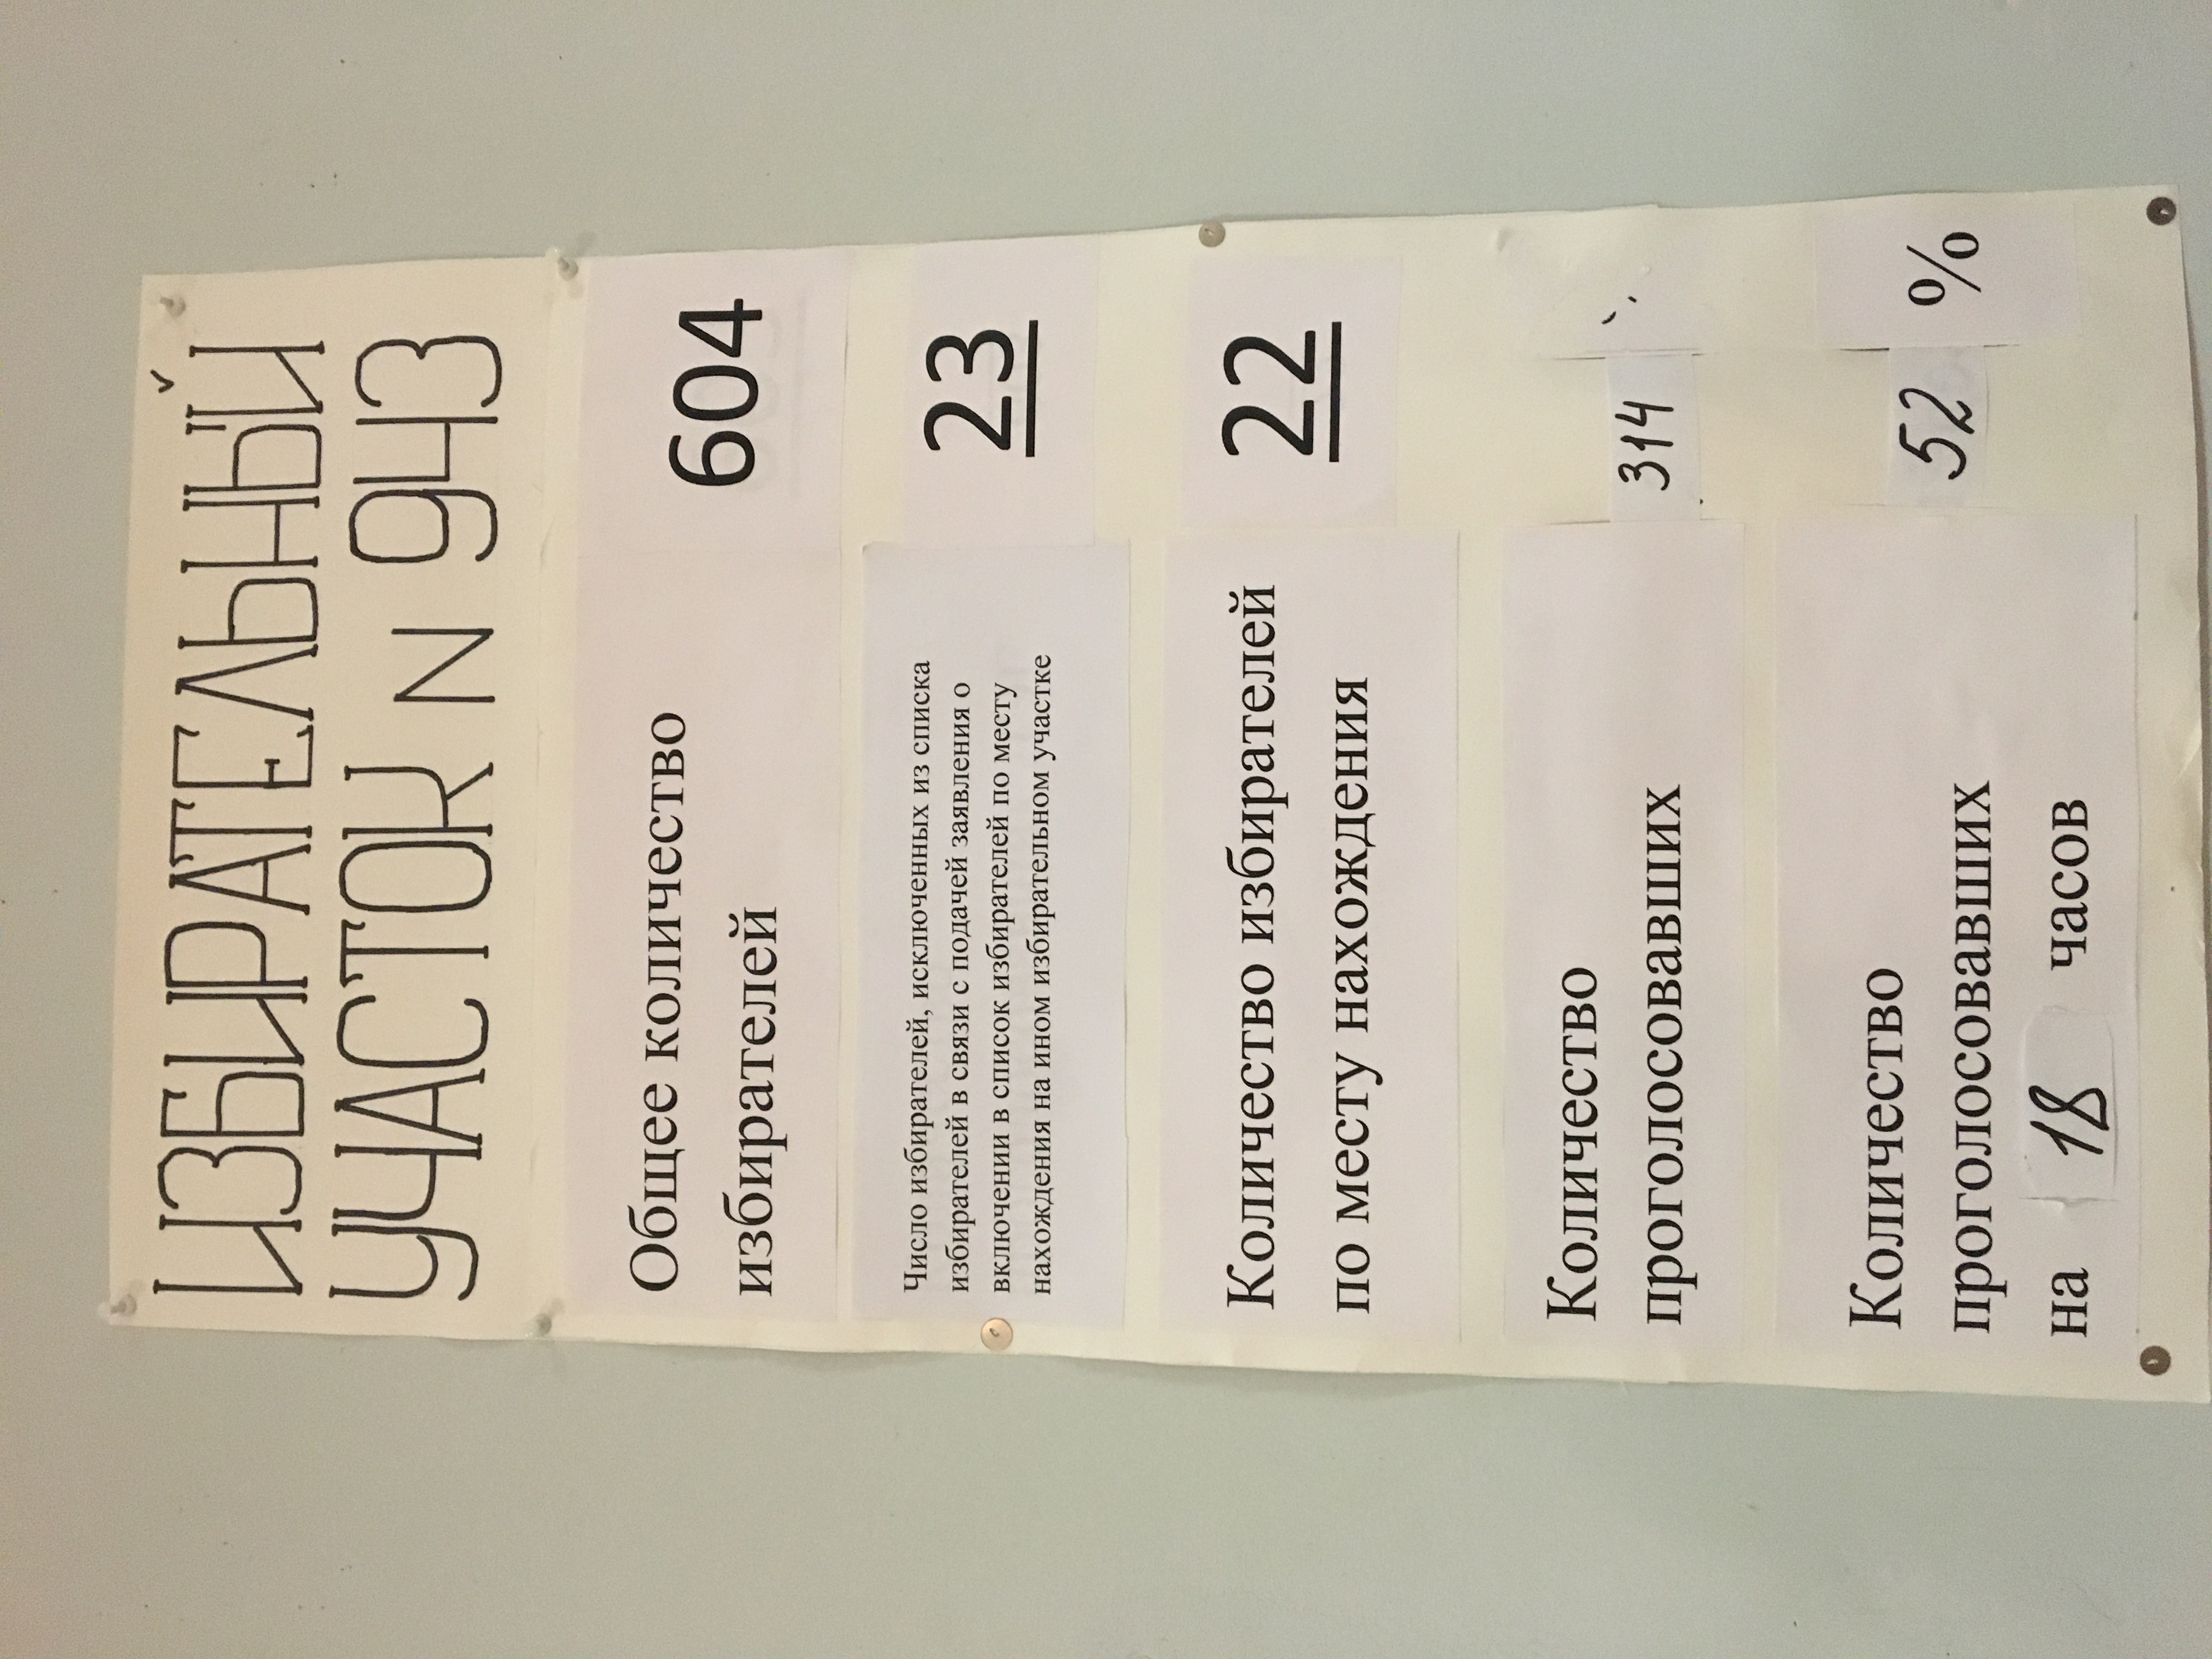 ИЗБИРАТЕЛЬНЫЙ
УЧАСТОК N 943
Общее количество
избирателей
604
Число избирателей, исключенных из списка
избирателей в связи с подачей заявления о
включении в список избирателей по месту
нахождения на ином избирательном участке
23
Количество избирателей
по месту нахождения
22
Количество
проголосовавших
314
Количество
проголосовавших
на 18 часов
52 %